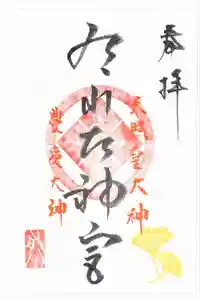 奉拝
天照皇大神
山大神宮
豊受大神